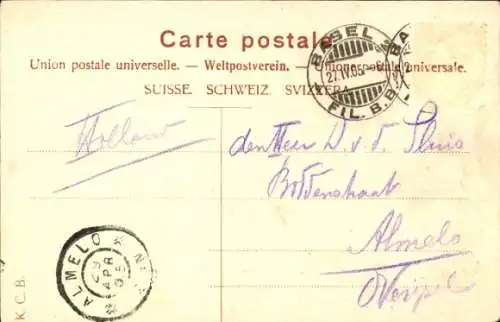 Carte postale.
Union postale universelle. — Weltpostverein. — Unione postale universale.
SUISSE. SCHWEIZ. SVIZZERA.
BASEL 2
27.IV.05.-8
FIL. B.B.
BA
Holland
den Heer D. v. d. Sluis
Boddenstraat
Almelo
ALMELO
29 APR 05
K. C. B.